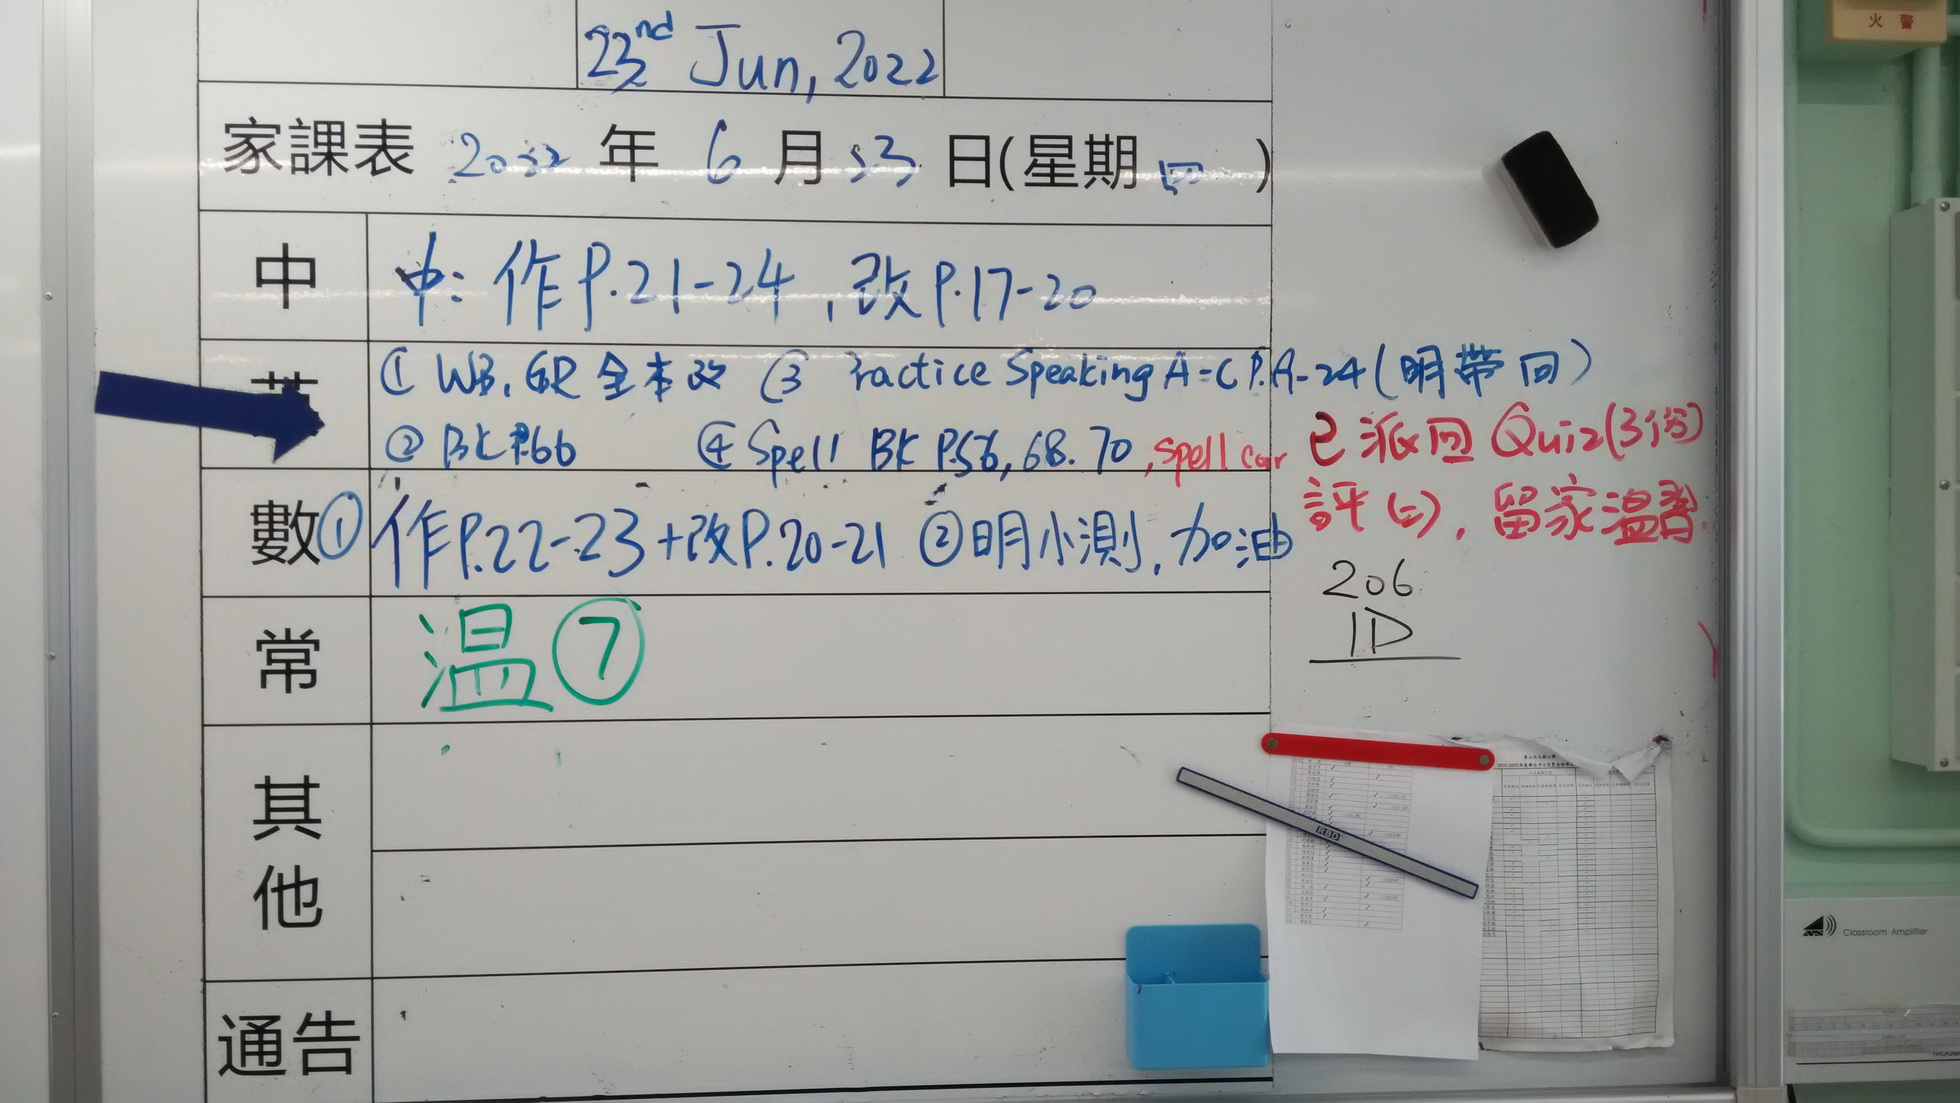 23nd Jun, 2022
家課表 2022 年 6 月 23 日(星期 四 )
中 中: 作P.21-24 , 改P.17-20
英 ① WB, GR 全本改 ③ Practice Speaking A-C P.A-24 (明帶回)
② BK P.66 ④ Spell BK P.56, 68. 70 , spell car
已派回 Quiz(3份)
評(二), 留家溫習
數 ① 作P.22-23 + 改P.20-21 ② 明小測, 加油
206
1D
常 温⑦
其他
通告
火警
RBD
Classroom Amplifier